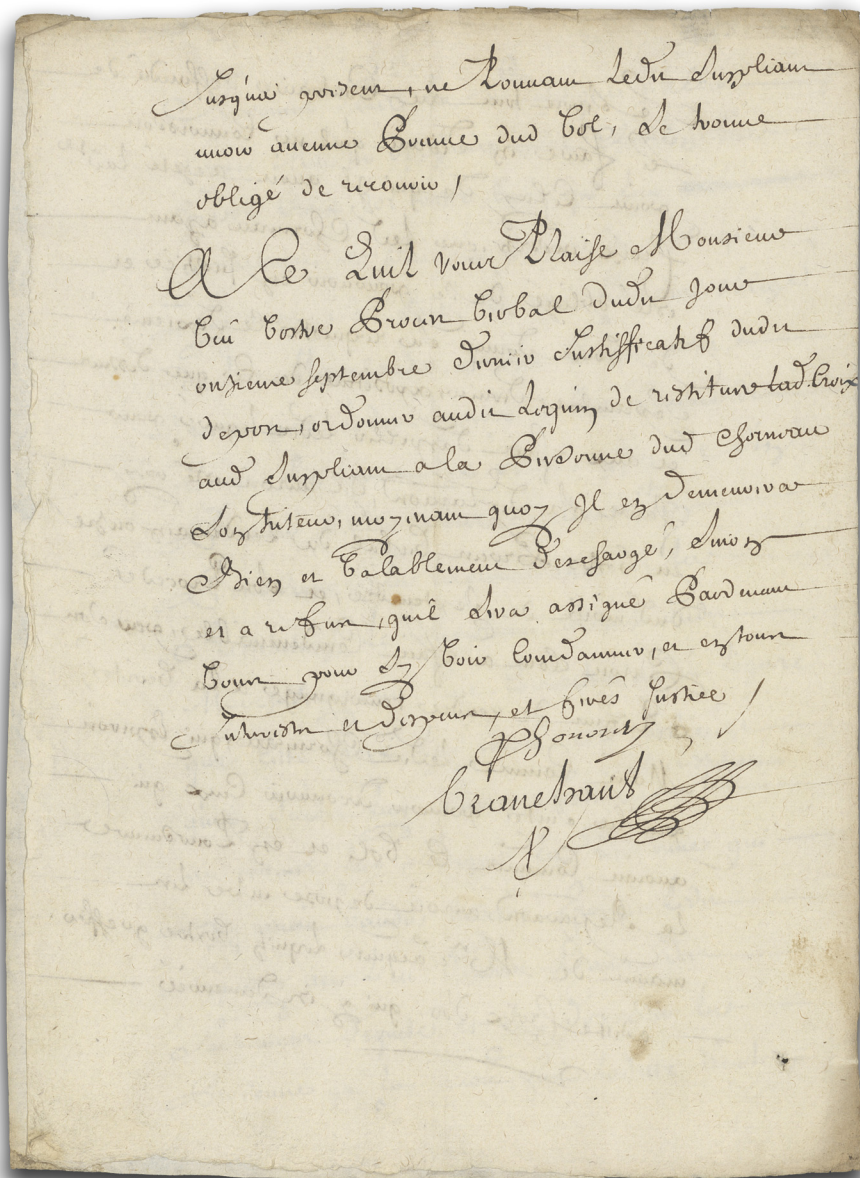 Jusqu'a present, ne Pouuant Ledit Supliant
auoir aucunne Preuue dud Vol, Se trouue
obligé de recourir /
A Ce Quil vous Plaise Monsieur
Veu Vostre Procez Verbal dudit jour
onzieme septembre dernier Justifficatif dudit
depost, ordonner audit Loquin de restituer lad. Croix
aud Supliant a la Personne dud
Son tuteur, moyenant quoy Il en demeurera
Bien et Valablement dechargé, Sinon
et a refus, quil Sera assigné Pardeuant
Vous pour Sy Voir Condamner, et en tous
Interests et depens, et ferés Justice /